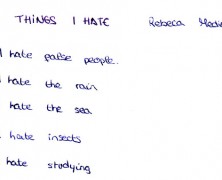 THINGS I HATE Rebeca Medin
I hate palse people.
I hate the rain
hate the sea
hate insects
hate studying